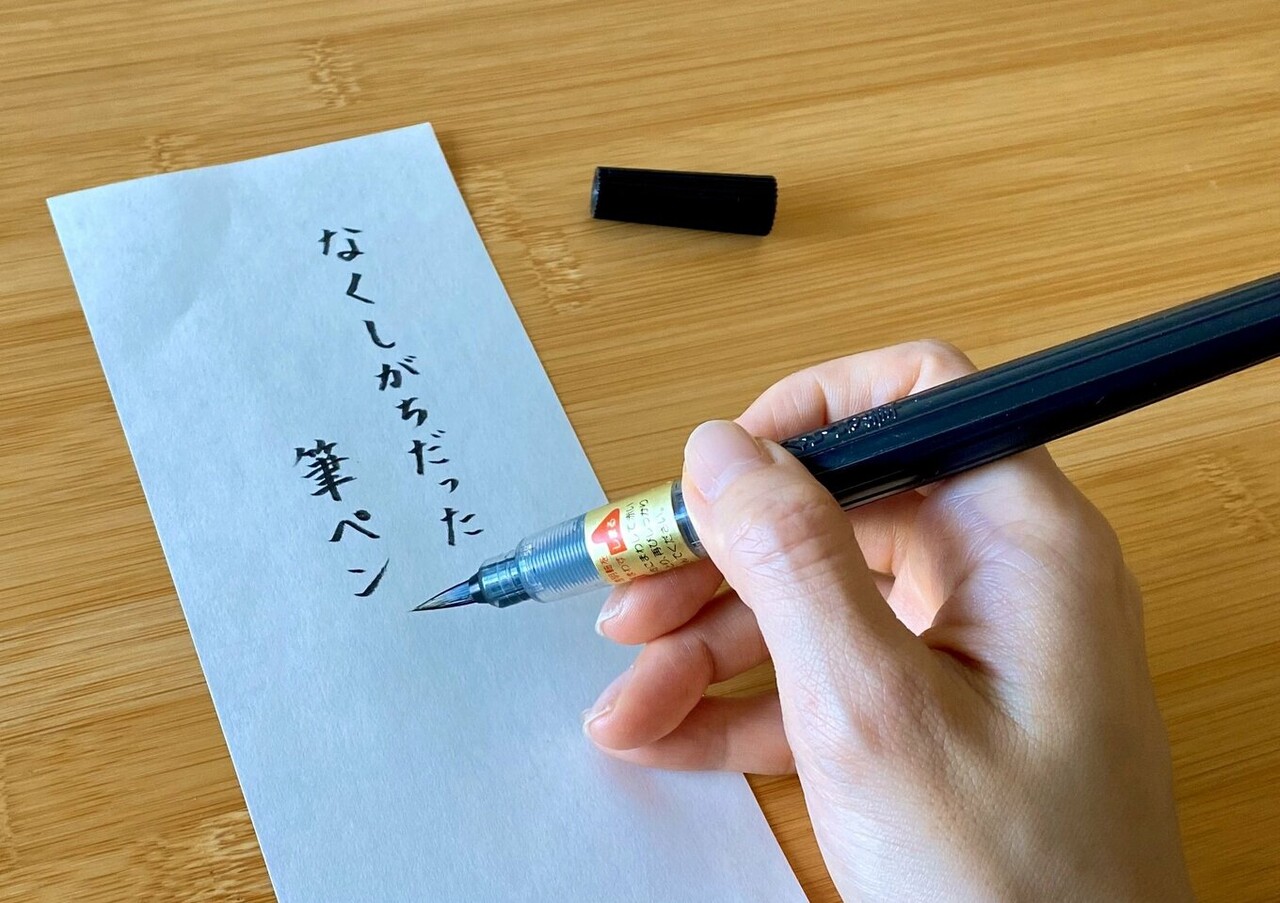 なくしがちだった
筆ペン